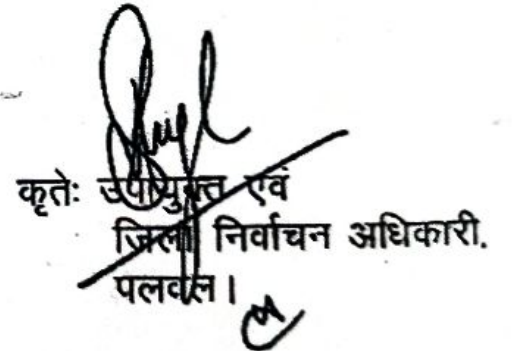 कृतेः उपायुक्त एवं
जिला निर्वाचन अधिकारी.
पलवल।